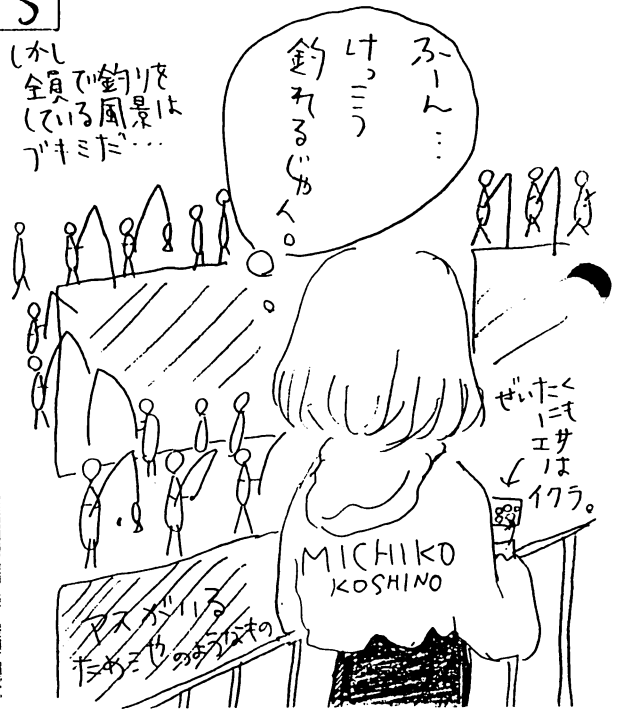 5
しかし
全員で釣りを
している風景は
ブキミだ…
ふーん…
けっこう
釣れるじゃん。
ぜいたく
にも
エサは
イクラ。
MICHIKO
KOSHINO
アスがいる
ため池のようなもの